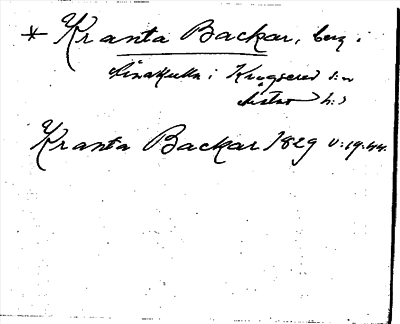 * Kranta Backar, berg i
Åsakulla i Krogsered s:n
Årstad h:d
Kranta Backar 1829 v:19.44.